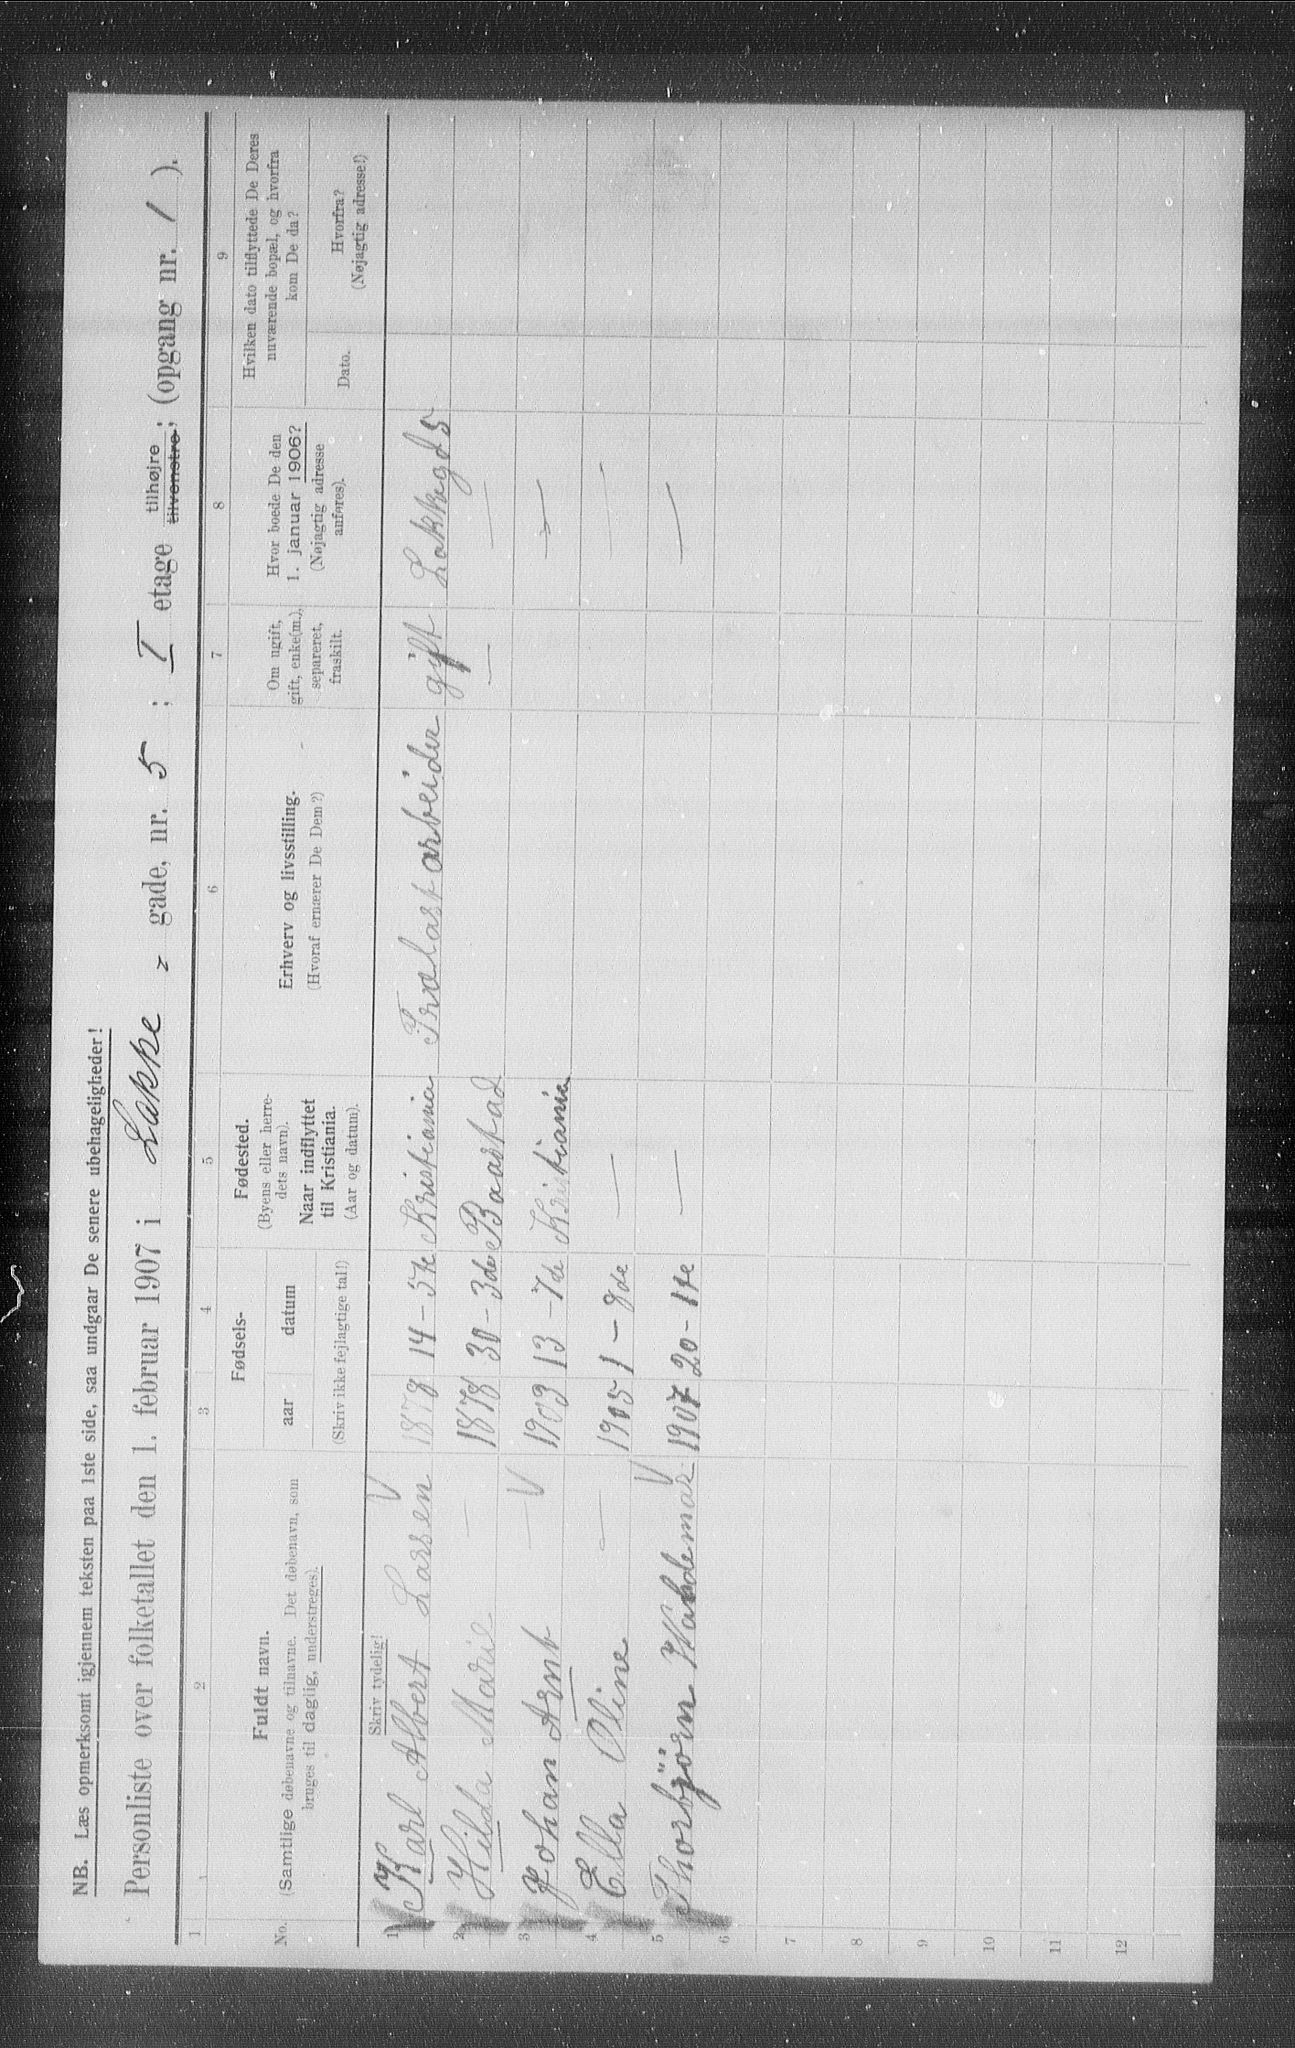 NB. Læs opmerksomt igjennem teksten paa 1ste side, saa undgaar De senere ubehageligheder!
Personliste over folketallet den 1. februar 1907 i Lakke - gade, nr. 5 ; I etage tilhøjre tilvenstre; (opgang nr. 1 ).
1 2 3 4 5 6 7 8 9
No.
Fuldt navn.
(Samtlige døbenavne og tilnavne. Det døbenavn, som
bruges til daglig, understreges).
Fødsels-
aar datum
(Skriv ikke fejlagtige tal!)
Fødested.
(Byens eller herre-
dets navn).
Naar indflyttet
til Kristiania.
(Aar og datum).
Erhverv og livsstilling.
(Hvoraf ernærer De Dem?)
Om ugift,
gift, enke(m.),
separeret,
fraskilt.
Hvor boede De den
1. januar 1906?
(Nøjagtig adresse
anføres).
Hvilken dato tilflyttede De Deres
nuværende bopæl, og hvorfra
kom De da?
Dato.
Hvorfra?
(Nøjagtig adresse!)
Skriv tydelig!
1 Karl Albert Larsen V 1878 14 - 5te Kristiania Trælastarbeider gift Lakkegd 5
2 Hilda Marie — 1878 30 - 3de Baastad — —
3 Johan Arnt — V 1903 13 - 7de Kristiania —
4 Ella Oline — 1905 1 - 8de — —
5 Thorbjörn Valdemar V 1907 20 - 1te — —
6
7
8
9
10
11
12